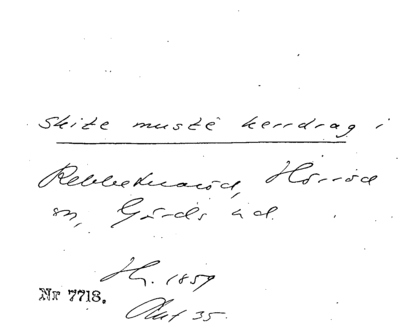 Skite musté kerrdrag i
Rebbetuaröd, Hörröd
sn, Gärds hd.
Hg. 1859
Nr 7718.
35.